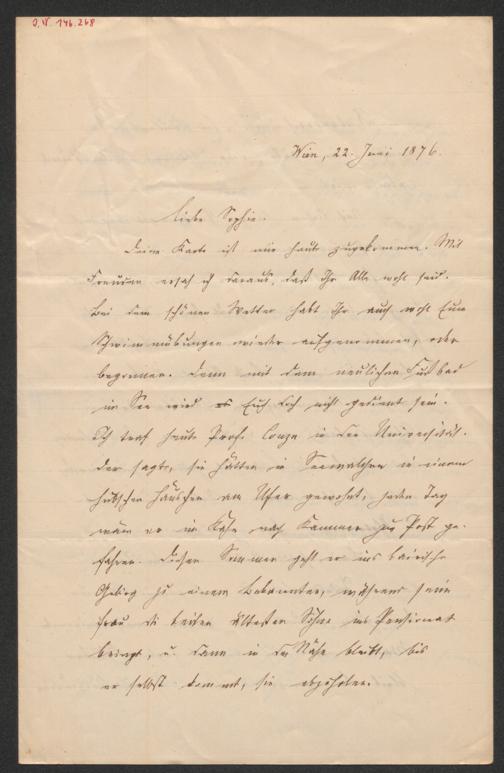 J.N. 146.268
Wien, 22. Juni 1876.
Liebe Sophie.
Deine Karte ist mir heute zugekommen. Mit
Freuden ersah ich daraus, daß Ihr Alle wohl seid.
Bei dem schönen Wetter habt Ihr auch wohl Eure
Schwimmübungen wieder aufgenommen, oder
begonnen. Denn mit dem neulichen Fußbad
im See wird es Euch doch nicht gedient sein.
Ich traf heute Prof. Conze in der Universität.
Der sagte, sie hätten in Seewalchen in einem
hübschen Häuschen am Ufer gewohnt, jeden Tag
wäre er im Kahn nach Kammer zur Post ge-
fahren. Diesen Sommer geht er ins bairische
Gebirg zu einem Bekannten, während seine
Frau die beiden ältesten Söhne ins Pensionat
bringt, u. dann in der Nähe bleibt, bis
er selbst kommt, sie abzuholen.